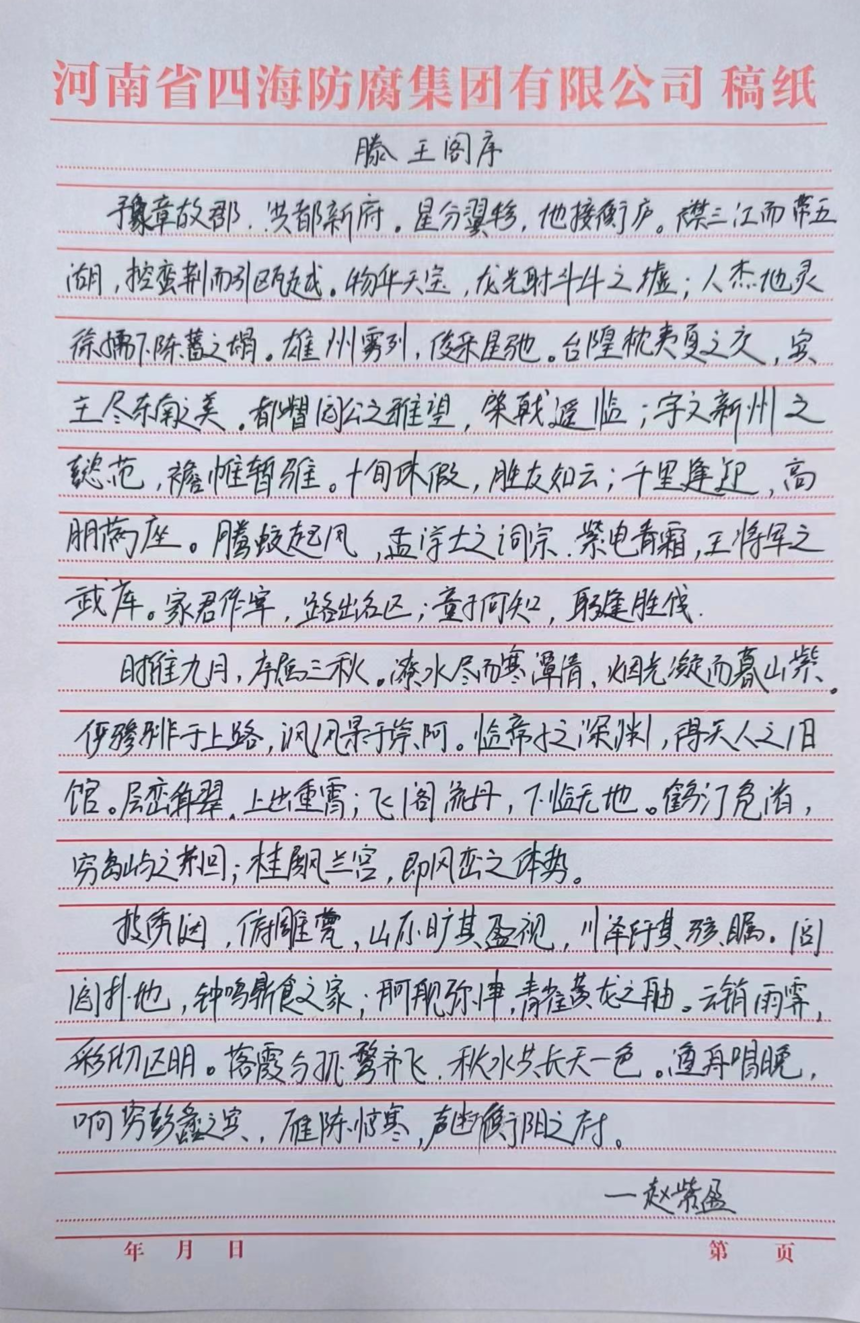 河南省四海防腐集团有限公司 稿纸
滕王阁序
豫章故郡，洪都新府。星分翼轸，地接衡庐。襟三江而带五
湖，控蛮荆而引瓯越。物华天宝，龙光射斗牛之墟；人杰地灵
徐孺下陈蕃之榻。雄州雾列，俊采星驰。台隍枕夷夏之交，宾
主尽东南之美。都督阎公之雅望，棨戟遥临；宇文新州之
懿范，襜帷暂驻。十旬休假，胜友如云；千里逢迎，高
朋满座。腾蛟起凤，孟学士之词宗．紫电青霜，王将军之
武库。家君作宰，路出名区；童子何知，躬逢胜饯．
时维九月，序属三秋。潦水尽而寒潭清，烟光凝而暮山紫。
俨骖騑于上路，访风景于崇阿。临帝子之深渊，得天人之旧
馆。层峦耸翠，上出重霄；飞阁流丹，下临无地。鹤汀凫渚，
穷岛屿之萦回；桂殿兰宫，即冈峦之体势。
披绣闼，俯雕甍，山原旷其盈视，川泽纡其骇瞩。闾
阎扑地，钟鸣鼎食之家；舸舰弥津，青雀黄龙之舳。云销雨霁，
彩彻区明。落霞与孤鹜齐飞．秋水共长天一色。渔舟唱晚，
响穷彭蠡之滨，雁阵惊寒，声断衡阳之浦。
一赵紫盈
年 月 日 第 页